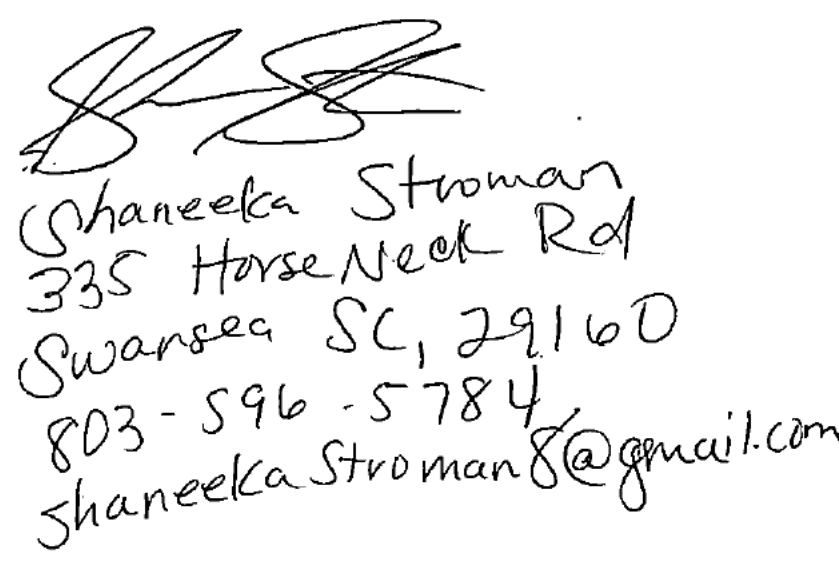 Shaneeka Stroman
335 Horse Neck Rd
Swansea SC, 29160
803-596-5784
shaneekastroman8@gmail.com